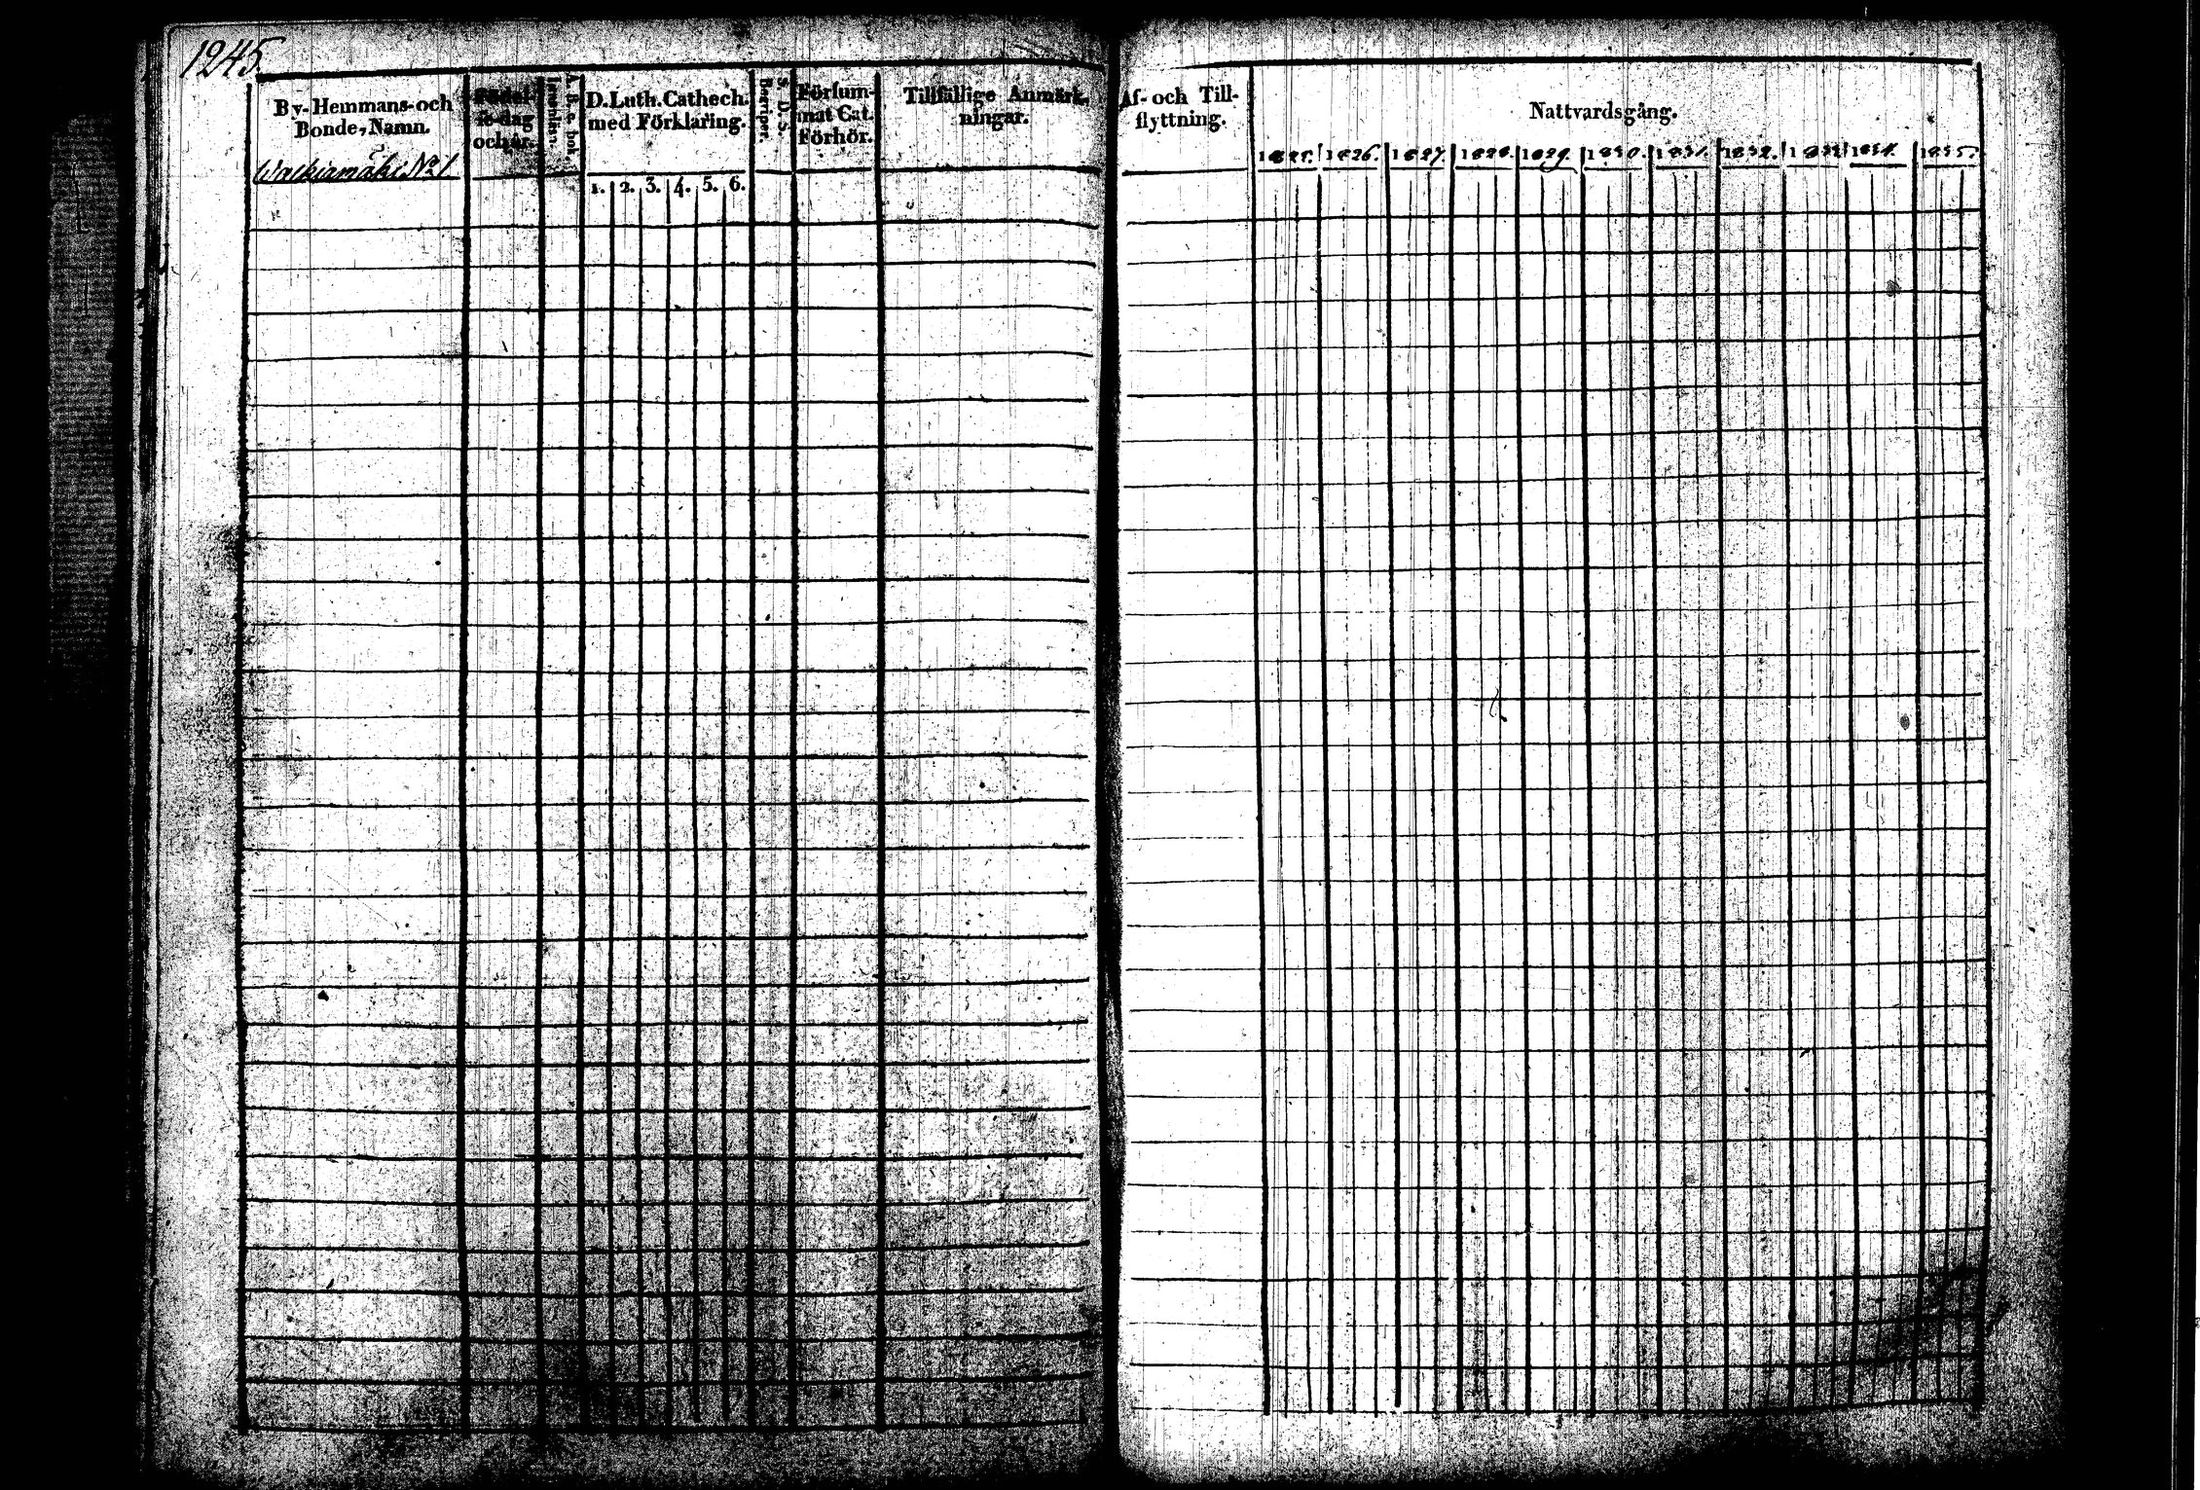 1245.
By-Hemmans-och
Bonde-Namn.
Födel-
se-dag
och år.
A. B. c. bok.
Innanläs-
D. Luth. Cathech.
med Förklaring.
1. 2. 3. 4. 5. 6.
S. D. S.
Begriper.
Försum-
mat Cat.
Förhör.
Tillfällige Anmärk-
ningar.
Walkiamäki No 1
Af- och Till-
flyttning.
Nattvardsgång.
1825. 1826. 1827. 1828. 1829. 1830. 1831. 1832. 1833. 1834. 1835.